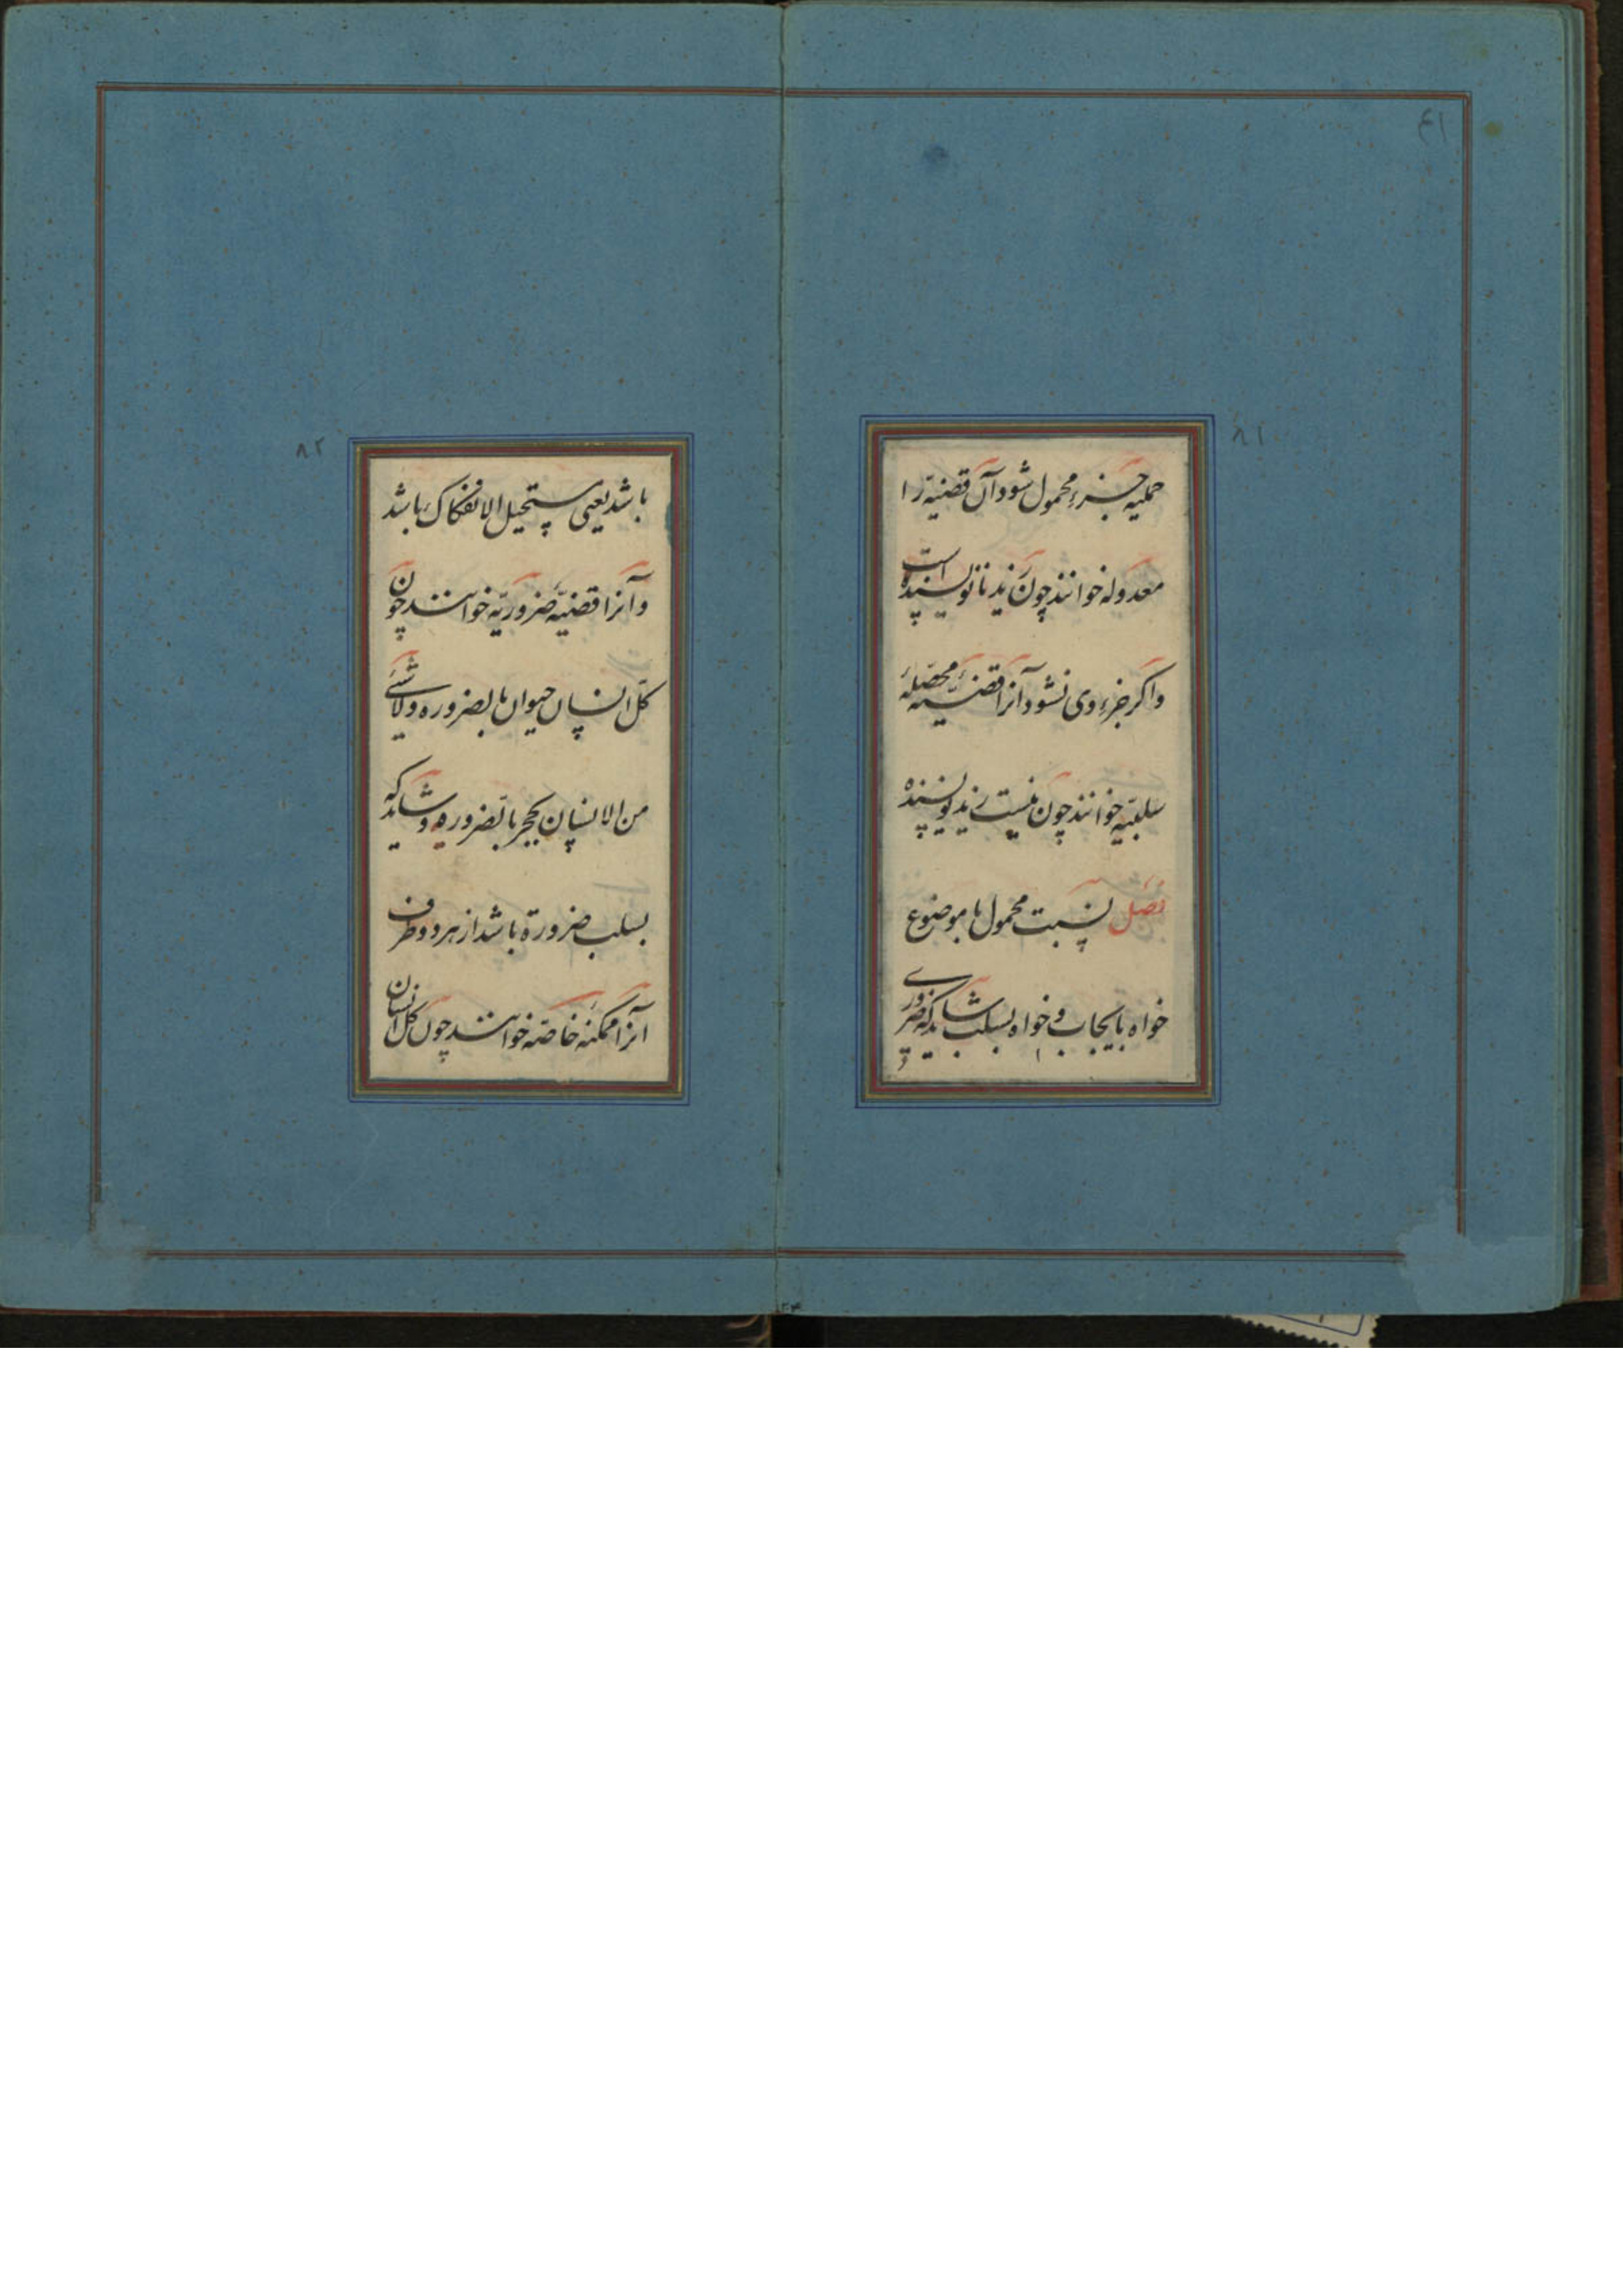 ۸۱
حملیه جزء محمول شود آن قضیه را
معدوله خوانند چون زید نانویسنده است
واکر جزء وی نشود آنرا قضیهٔ محصّلهٔ
سلبیّه خوانند چون نیست زید نویسنده
فصل نسبت محمول با موضوع
خواه بایجاب و خواه بسلب شاید که ضروری
۸۲
باشد یعنی مستحیل الانفکاک باشد
و آنرا قضیّهٔ ضروریّه خوانند چون
کل انسان حیوان بالضروره و لاشئ
من الانسان بحجر بالضروره و شاید که
بسلب ضرورة باشد از هر دو طرف
آنرا ممکنه خاصّه خوانند چون کل انسان